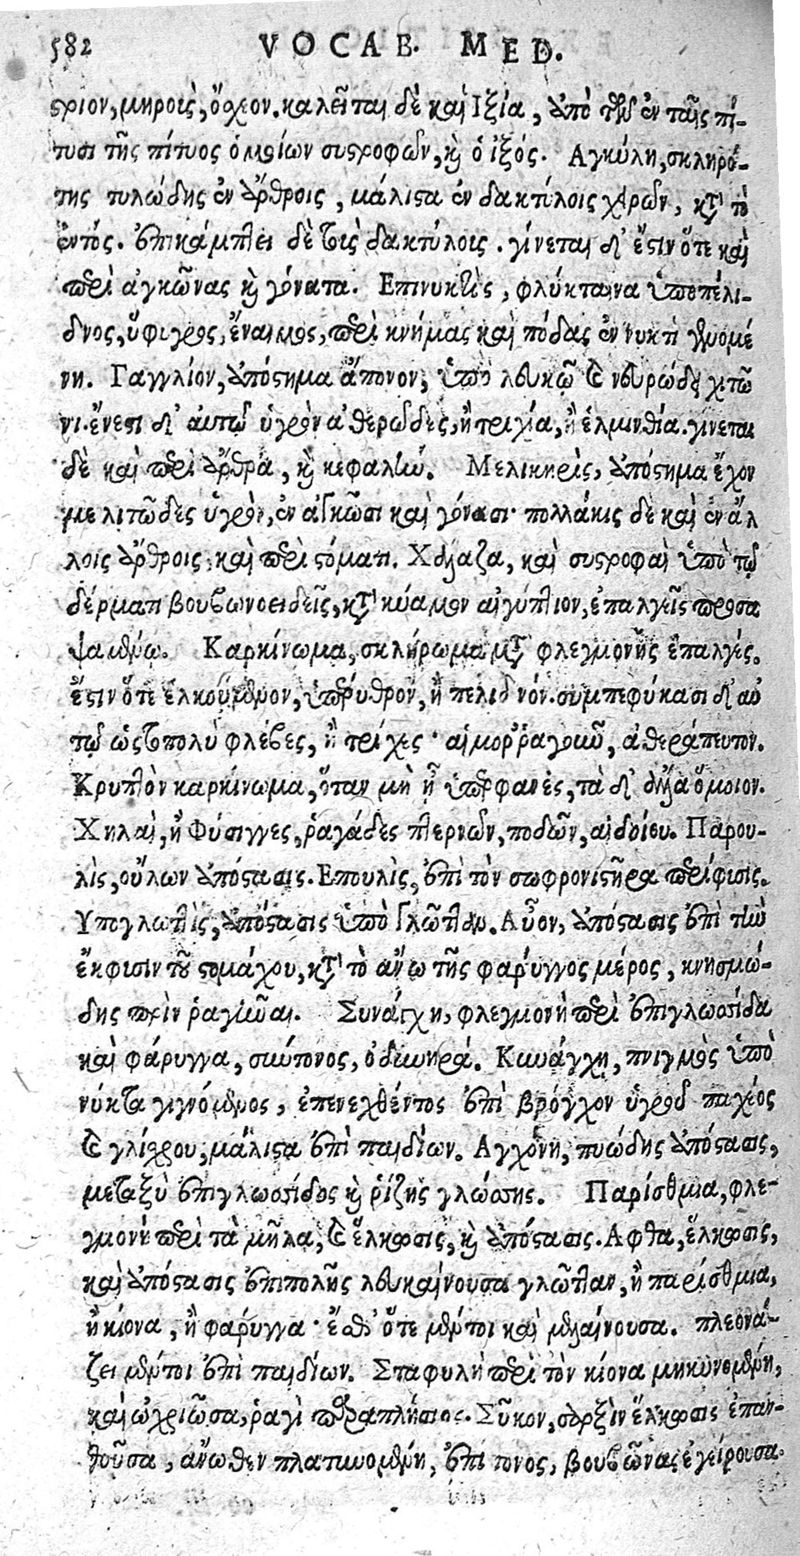 582 VOCAB. MED.
ςριον, μηροῖς, ὄρχεον. καλεῖται δὲ καὶ Ιξία, ἀπὸ τῶν ἐν ταῖς πί-
τυσι τῆς πίτυος ὁμοίων συστροφῶν, καὶ ὁ ἰξός. Αγκύλη, σκληρό-
της τυλώδης ἐν ἄρθροις, μάλιστα ἐν δακτύλοις χειρῶν, κατὰ τὸ
ἐντός. ἐπικάμπτει δὲ τοὺς δακτύλοις. γίνεται δ' ἔστιν ὅτε καὶ
περὶ ἀγκῶνας καὶ γόνατα. Επινυκτὶς, φλύκταινα ὑποπέλι-
δνος, ὕφυγρος, ἔναιμος, περὶ κνήμας καὶ πόδας ἐν νυκτὶ γενομέ
νη. Γαγγλίον, ἀπόστημα ἄπονον, ὑπὸ λευκῷ καὶ νευρώδει χιτῶ
νι. ἔνεστι δ' αὐτῷ ὑγρὸν ἀθερῶδες, ἢ τριχία, ἢ ἑλμινθία. γίνεται
δὲ καὶ περὶ ἄρθρα, καὶ κεφαλήν. Μελικηρὶς, ἀπόστημα ἔχον
μελιτῶδες ὑγρὸν, ἐν ἀγκῶσι καὶ γόνασι· πολλάκις δὲ καὶ ἐν ἄλ
λοις ἄρθροις, καὶ περὶ στόματι. Χάλαζα, καὶ συστροφαὶ ὑπὸ τῷ
δέρματι βουβωνοειδεῖς, κατὰ κύαμον αἰγύπτιον, ἐπαλγεῖς προσα
ψαμένῳ. Καρκίνωμα, σκλήρωμα μετὰ φλεγμονῆς ἐπαλγές.
ἔστιν ὅτε ἑλκούμενον, ὑπέρυθρον, ἢ πελιδνόν. συμπεφύκασι δ' αὐ
τῷ ὡς τοπολὺ φλέβες, ἢ τρίχες· αἱμορραγοῦν, ἀθεράπευτον.
Κρυπτὸν καρκίνωμα, ὅταν μὴ ᾖ ὑπερφανὲς, τὰ δ' ἄλλα ὅμοιον.
Χηλαὶ, ἢ Φύσιγγες, ῥαγάδες πτερνῶν, ποδῶν, αἰδοίου. Παρου-
λὶς, οὔλων ἀπόστασις. Επουλὶς, ἐπὶ τὸν σωφρονιστῆρα περίφυσις.
Υπογλωττὶς, ἀπόστασις ὑπὸ γλῶτταν. Αὖον, ἀπόστασις ἐπὶ τὴν
ἔκφυσιν τοῦ στομάχου, κατὰ τὸ ἄνω τῆς φάρυγγος μέρος, κνησμώ-
δης πρὶν ῥαγῆναι. Συνάγχη, φλεγμονὴ περὶ ἐπιγλωσσίδα
καὶ φάρυγγα, σύντονος, ὀδυνηρά. Κυνάγχη, πνιγμὸς ὑπὸ
νύκτα γιγνόμενος, ἐπενεχθέντος ἐπὶ βρόγχον ὑγροῦ παχέος
καὶ γλίσχρου, μάλιστα ἐπὶ παιδίων. Αγχόνη, πυώδης ἀπόστασις,
μεταξὺ ἐπιγλωσσίδος καὶ ῥίζης γλώσσης. Παρίσθμια, φλε-
γμονὴ περὶ τὰ μῆλα, καὶ ἕλκωσις, καὶ ἀπόστασις. Αφθα, ἕλκωσις,
καὶ ἀπόστασις ἐπιπολῆς λευκαίνουσα γλῶτταν, ἢ παρίσθμια,
ἢ κίονα, ἢ φάρυγγα· ἔσθ' ὅτε μέντοι καὶ μελαίνουσα. πλεονά-
ζει μέντοι ἐπὶ παιδίων. Σταφυλὴ περὶ τὸν κίονα μηκυνομένη,
καὶ ὠχριῶσα, ῥαγὶ παραπλήσιος. Σῦκον, σάρξιν ἕλκωσις ἐπαν-
θοῦσα, ἄνωθεν πλατυνομένη, ἐπίπονος, βουβῶνας ἐγείρουσα.